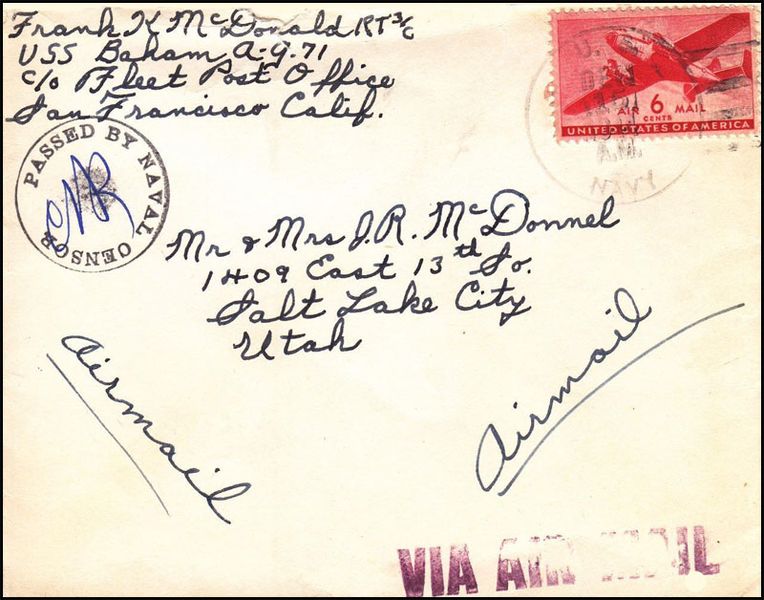 Frank K McDonald RT 3/c
USS Baham A.G. 71
c/o Fleet Post Office
San Francisco Calif.
PASSED BY NAVAL CENSOR
AIR 6 MAIL
CENTS
UNITED STATES OF AMERICA
U.S.
A.M.
NAVY
Mr & Mrs J.R. McDonnel
1409 East 13th So.
Salt Lake City
Utah
Airmail
Airmail
VIA AIR MAIL